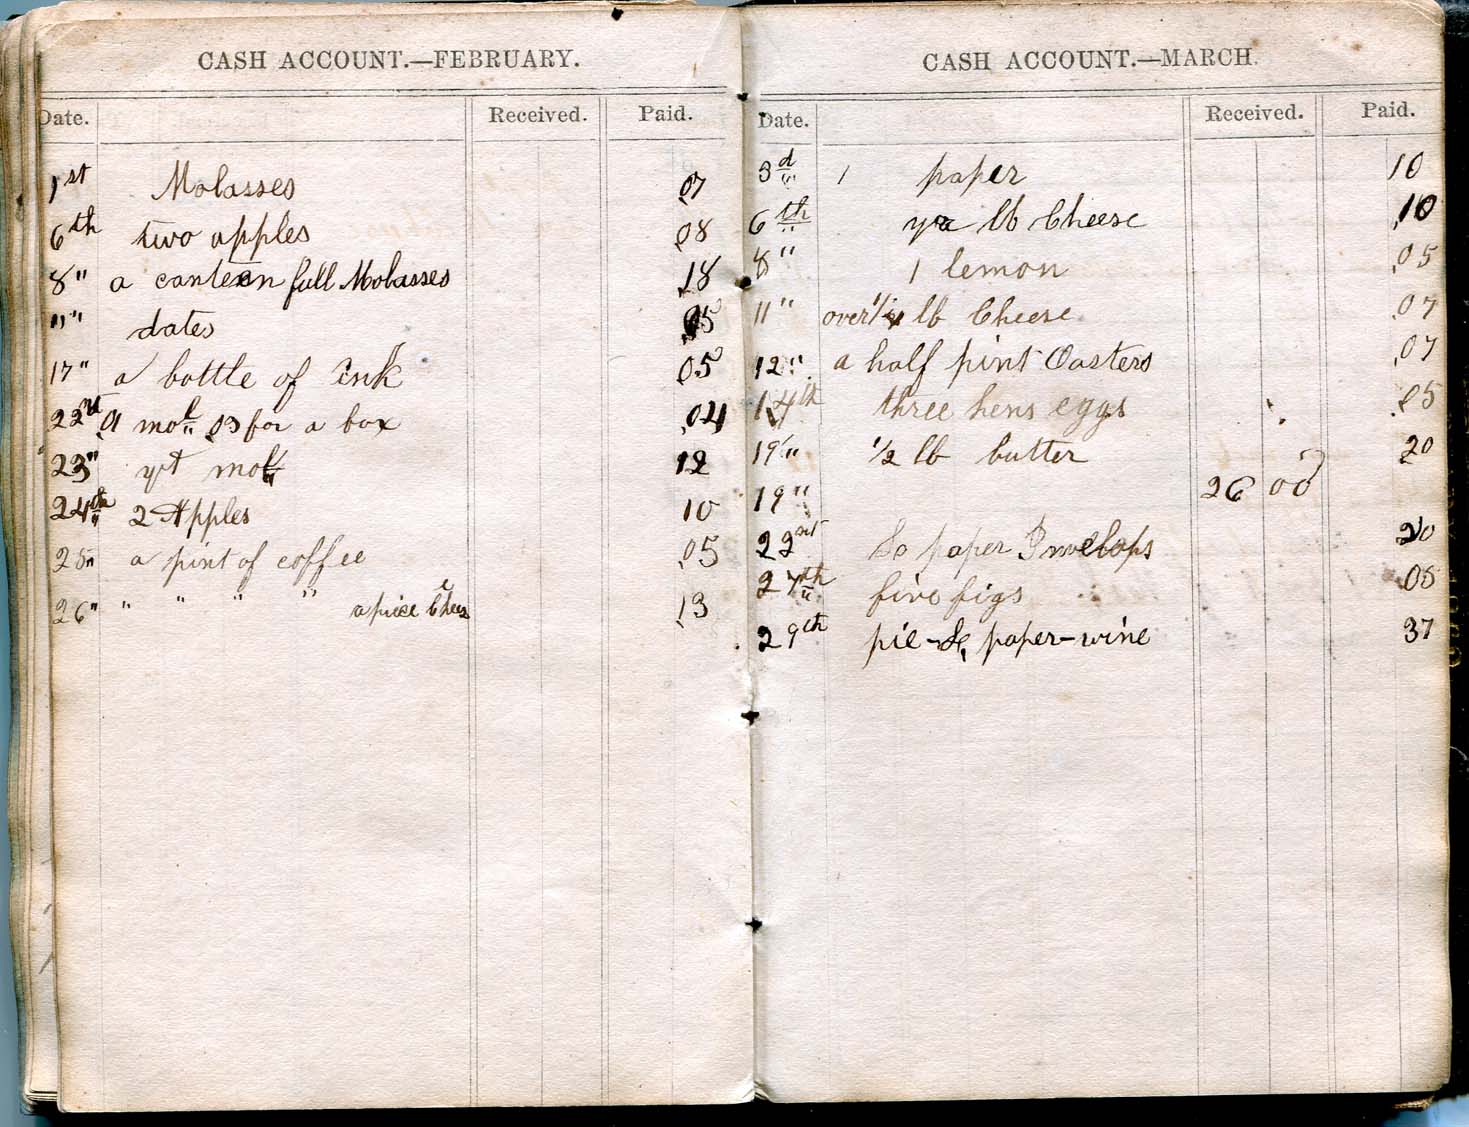 CASH ACCOUNT.—FEBRUARY.
Date. Received. Paid.
1st Molasses .07
6th two apples .08
8" a canteen full Molasses .18
11" dates .05
17" a bottle of ink .05
22nt a mol .03 for a box .04
23" qt mol 12
24th 2 Apples 10
25" a pint of coffee .05
26" " " " " a piece Chees .13
CASH ACCOUNT.—MARCH.
Date. Received. Paid.
3d 1 paper 10
6th lb Cheese .10
8" 1 lemon .05
11" over 1/4 lb Cheese .07
12" a half pint Oasters .07
14th three hens eggs .05
19" 1/2 lb butter 20
19" 26 00
22nt So paper Invelops 20
27th five figs .05
29th pie-&, paper-wine 37